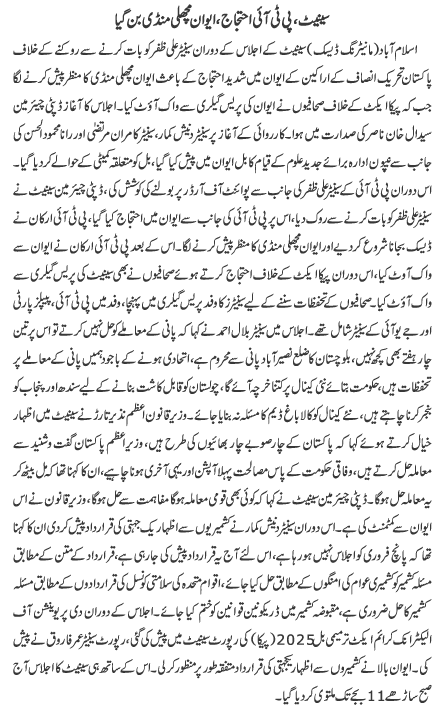 سینیٹ، پی ٹی آئی احتجاج، ایوان مچھلی منڈی بن گیا
اسلام آباد (مانیٹرنگ ڈیسک) سینیٹ کے اجلاس کے دوران سینیٹر علی ظفر کو بات کرنے سے روکنے کے خلاف
پاکستان تحریک انصاف کے اراکین کے ایوان میں شدید احتجاج کے باعث ایوان مچھلی منڈی کا منظر پیش کرنے لگا
جب کہ پیکا ایکٹ کے خلاف صحافیوں نے ایوان کی پریس گیلری سے واک آؤٹ کیا۔ اجلاس کا آغاز ڈپٹی چیئرمین
سیدال خان ناصر کی صدارت میں ہوا۔ کارروائی کے آغاز پر سینیٹر دنیش کمار، سینیٹر کامران مرتضیٰ اور رانا محمود الحسن کی
جانب سے نیون ادارہ برائے جدید علوم کے قیام کا بل ایوان میں پیش کیا گیا، بل کو متعلقہ کمیٹی کے حوالے کر دیا گیا۔
اس دوران پی ٹی آئی کے سینیٹر علی ظفر کی جانب سے پوائنٹ آف آرڈر پر بولنے کی کوشش کی، ڈپٹی چیئرمین سینیٹ نے
سینیٹر علی ظفر کو بات کرنے سے روک دیا، اس پر پی ٹی آئی کی جانب سے ایوان میں احتجاج کیا گیا، پی ٹی آئی ارکان نے
ڈیسک بجانا شروع کردیے اور ایوان مچھلی منڈی کا منظر پیش کرنے لگا۔ اس کے بعد پی ٹی آئی ارکان نے ایوان سے
واک آوٹ کیا، اس دوران پیکا ایکٹ کے خلاف احتجاج کرتے ہوئے صحافیوں نے بھی سینیٹ کی پریس گیلری سے
واک آؤٹ کیا۔ صحافیوں کے تحفظات سننے کے لیے سینیٹرز کا وفد پریس گیلری میں پہنچا، وفد میں پی ٹی آئی، پیپلز پارٹی
اور جے یو آئی کے سینیٹرز شامل تھے۔ اجلاس میں سینیٹر بلال احمد نے کہا کہ پانی کے معاملے کو حل نہیں کرتے تو اس پر تین
چار ہفتے بھی کچھ نہیں، بلوچستان کا ضلع نصیر آباد پانی سے محروم ہے، اتحادی ہونے کے باوجود ہمیں پانی کے معاملے پر
تحفظات ہیں، حکومت بتائے نئی کینال پر کتنا خرچہ آئے گا، چولستان کو قابل کاشت بنانے کے لیے سندھ اور پنجاب کو
بنجر کرنا چاہتے ہیں، نئے کینال کو کالا باغ ڈیم کا مسئلہ نہ بنایا جائے۔ وزیر قانون اعظم نذیر تارڑ نے سینیٹ میں اظہار
خیال کرتے ہوئے کہا کہ پاکستان کے چار صوبے چار بھائیوں کی طرح ہیں، وزیراعظم پاکستان گفت وشنید سے
معاملہ حل کرتے ہیں، وفاقی حکومت کے پاس مصالحت پہلا آپشن اور یہی آخری ہونا چاہیے، ان کا کہنا تھا کہ مل بیٹھ کر
یہ معاملہ حل ہوگا۔ ڈپٹی چیئرمین سینیٹ نے کہا کہ کوئی بھی قومی معاملہ ہوگا مفاہمت سے حل ہوگا، وزیر قانون نے اس
ایوان سے کمٹمنٹ کی ہے۔ اس دوران سینیٹر دنیش کمار نے کشمیریوں سے اظہار یک جہتی کی قرارداد پیش کردی ان کا کہنا
تھا کہ پانچ فروری کو اجلاس نہیں ہو رہا ہے، اس لئے آج یہ قرارداد پیش کی جارہی ہے، قرارداد کے متن کے مطابق
مسئلہ کشمیر کو کشمیری عوام کی امنگوں کے مطابق حل کیا جائے، اقوام متحدہ کی سلامتی کونسل کی قراردادوں کے مطابق مسئلہ
کشمیر کا حل ضروری ہے، مقبوضہ کشمیر میں ڈریکونین قوانین کو ختم کیا جائے۔ اجلاس کے دوران دی پریوینشن آف
الیکٹرانک کرائم ایکٹ ترمیمی بل 2025 (پیکا) کی رپورٹ سینیٹ میں پیش کی گئی، رپورٹ سینیٹر عمر فاروق نے پیش
کی۔ ایوان بالا نے کشمیروں سے اظہار یکجہتی کی قرارداد متفقہ طور پر منظور کرلی۔ اس کے ساتھ ہی سینیٹ کا اجلاس آج
صبح ساڑھے 11 بجے تک ملتوی کردیا گیا۔